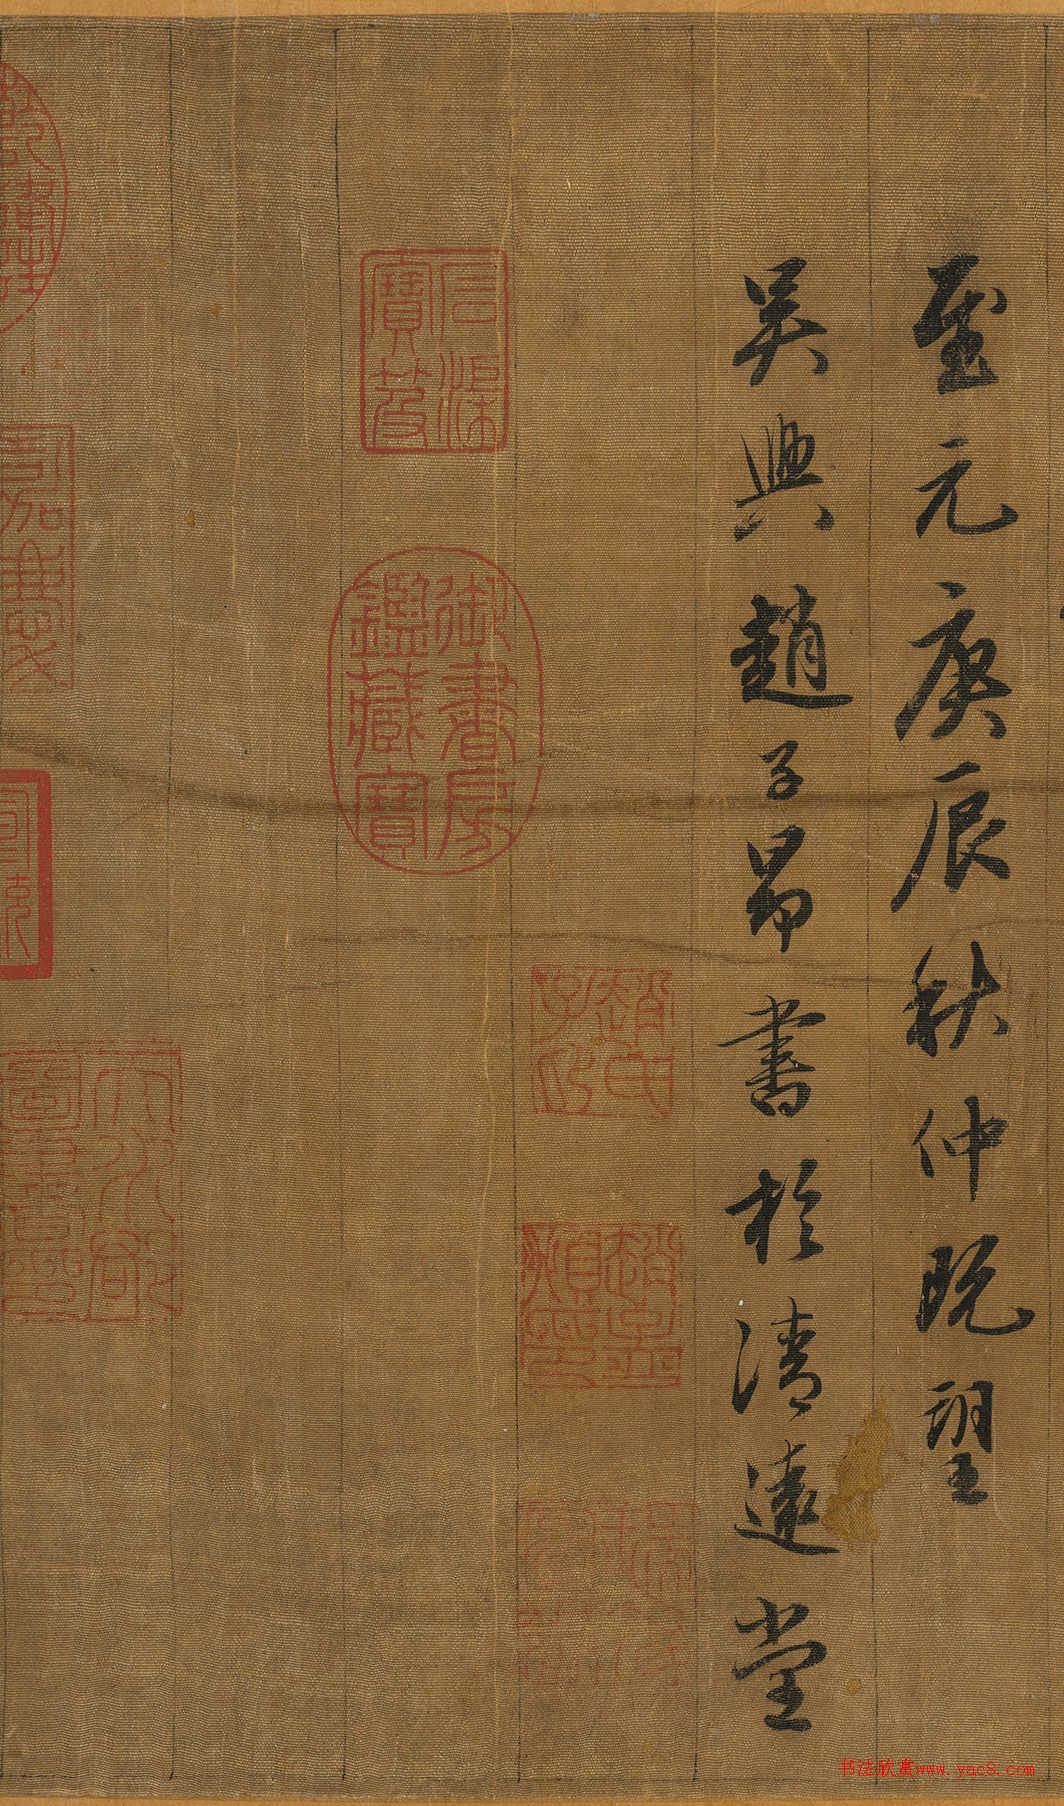 至元庚辰秋仲既望
吴興趙子昂書於清遠堂
石渠
寶笈
御書房
鑑藏寶
趙氏
子昂
趙孟
天水郡
圖書印
书法欣赏www.yac8.com